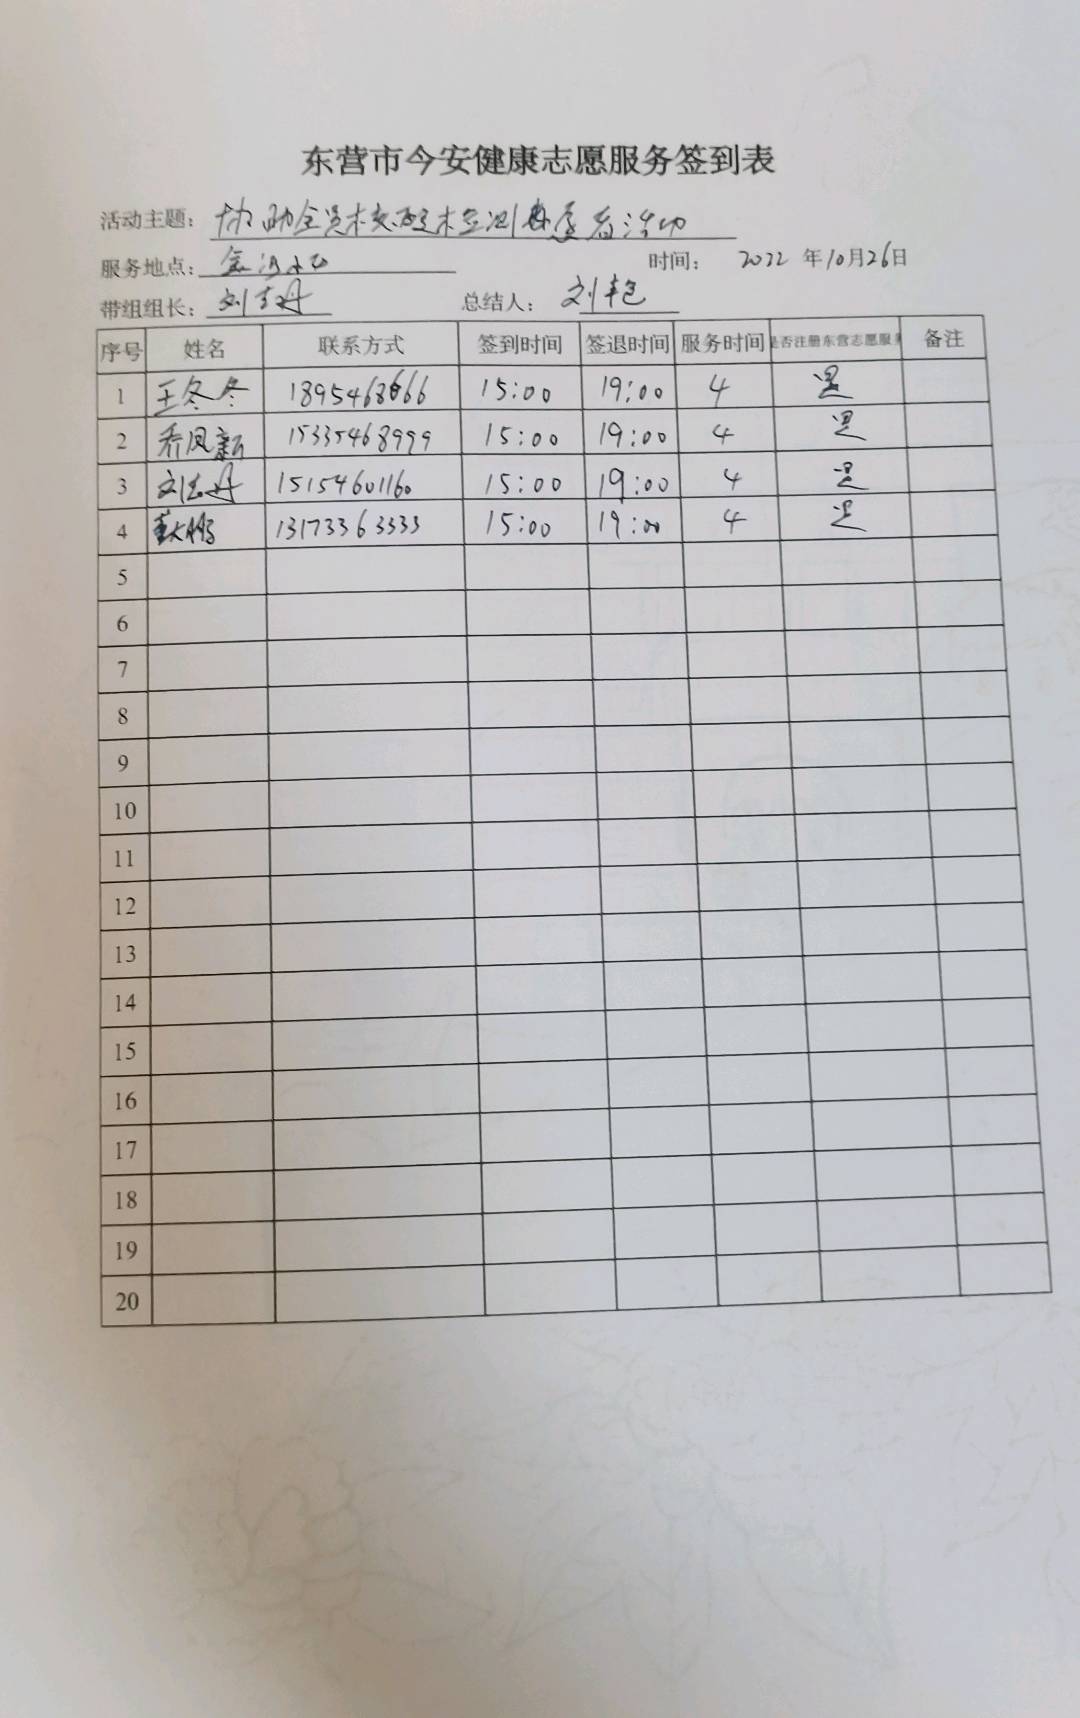 东营市今安健康志愿服务签到表
活动主题：协助全员核酸检测志愿者活动
服务地点：
时间： 2022 年10月26日
带组组长： 总结人： 刘艳
序号 姓名 联系方式 签到时间 签退时间 服务时间 是否注册东营志愿服务 备注
1 王冬冬 18954686666 15:00 19:00 4 是
2 乔凤新 15335468999 15:00 19:00 4 是
3 15154601160 15:00 19:00 4 是
4 13173363333 15:00 19:00 4 是
5
6
7
8
9
10
11
12
13
14
15
16
17
18
19
20